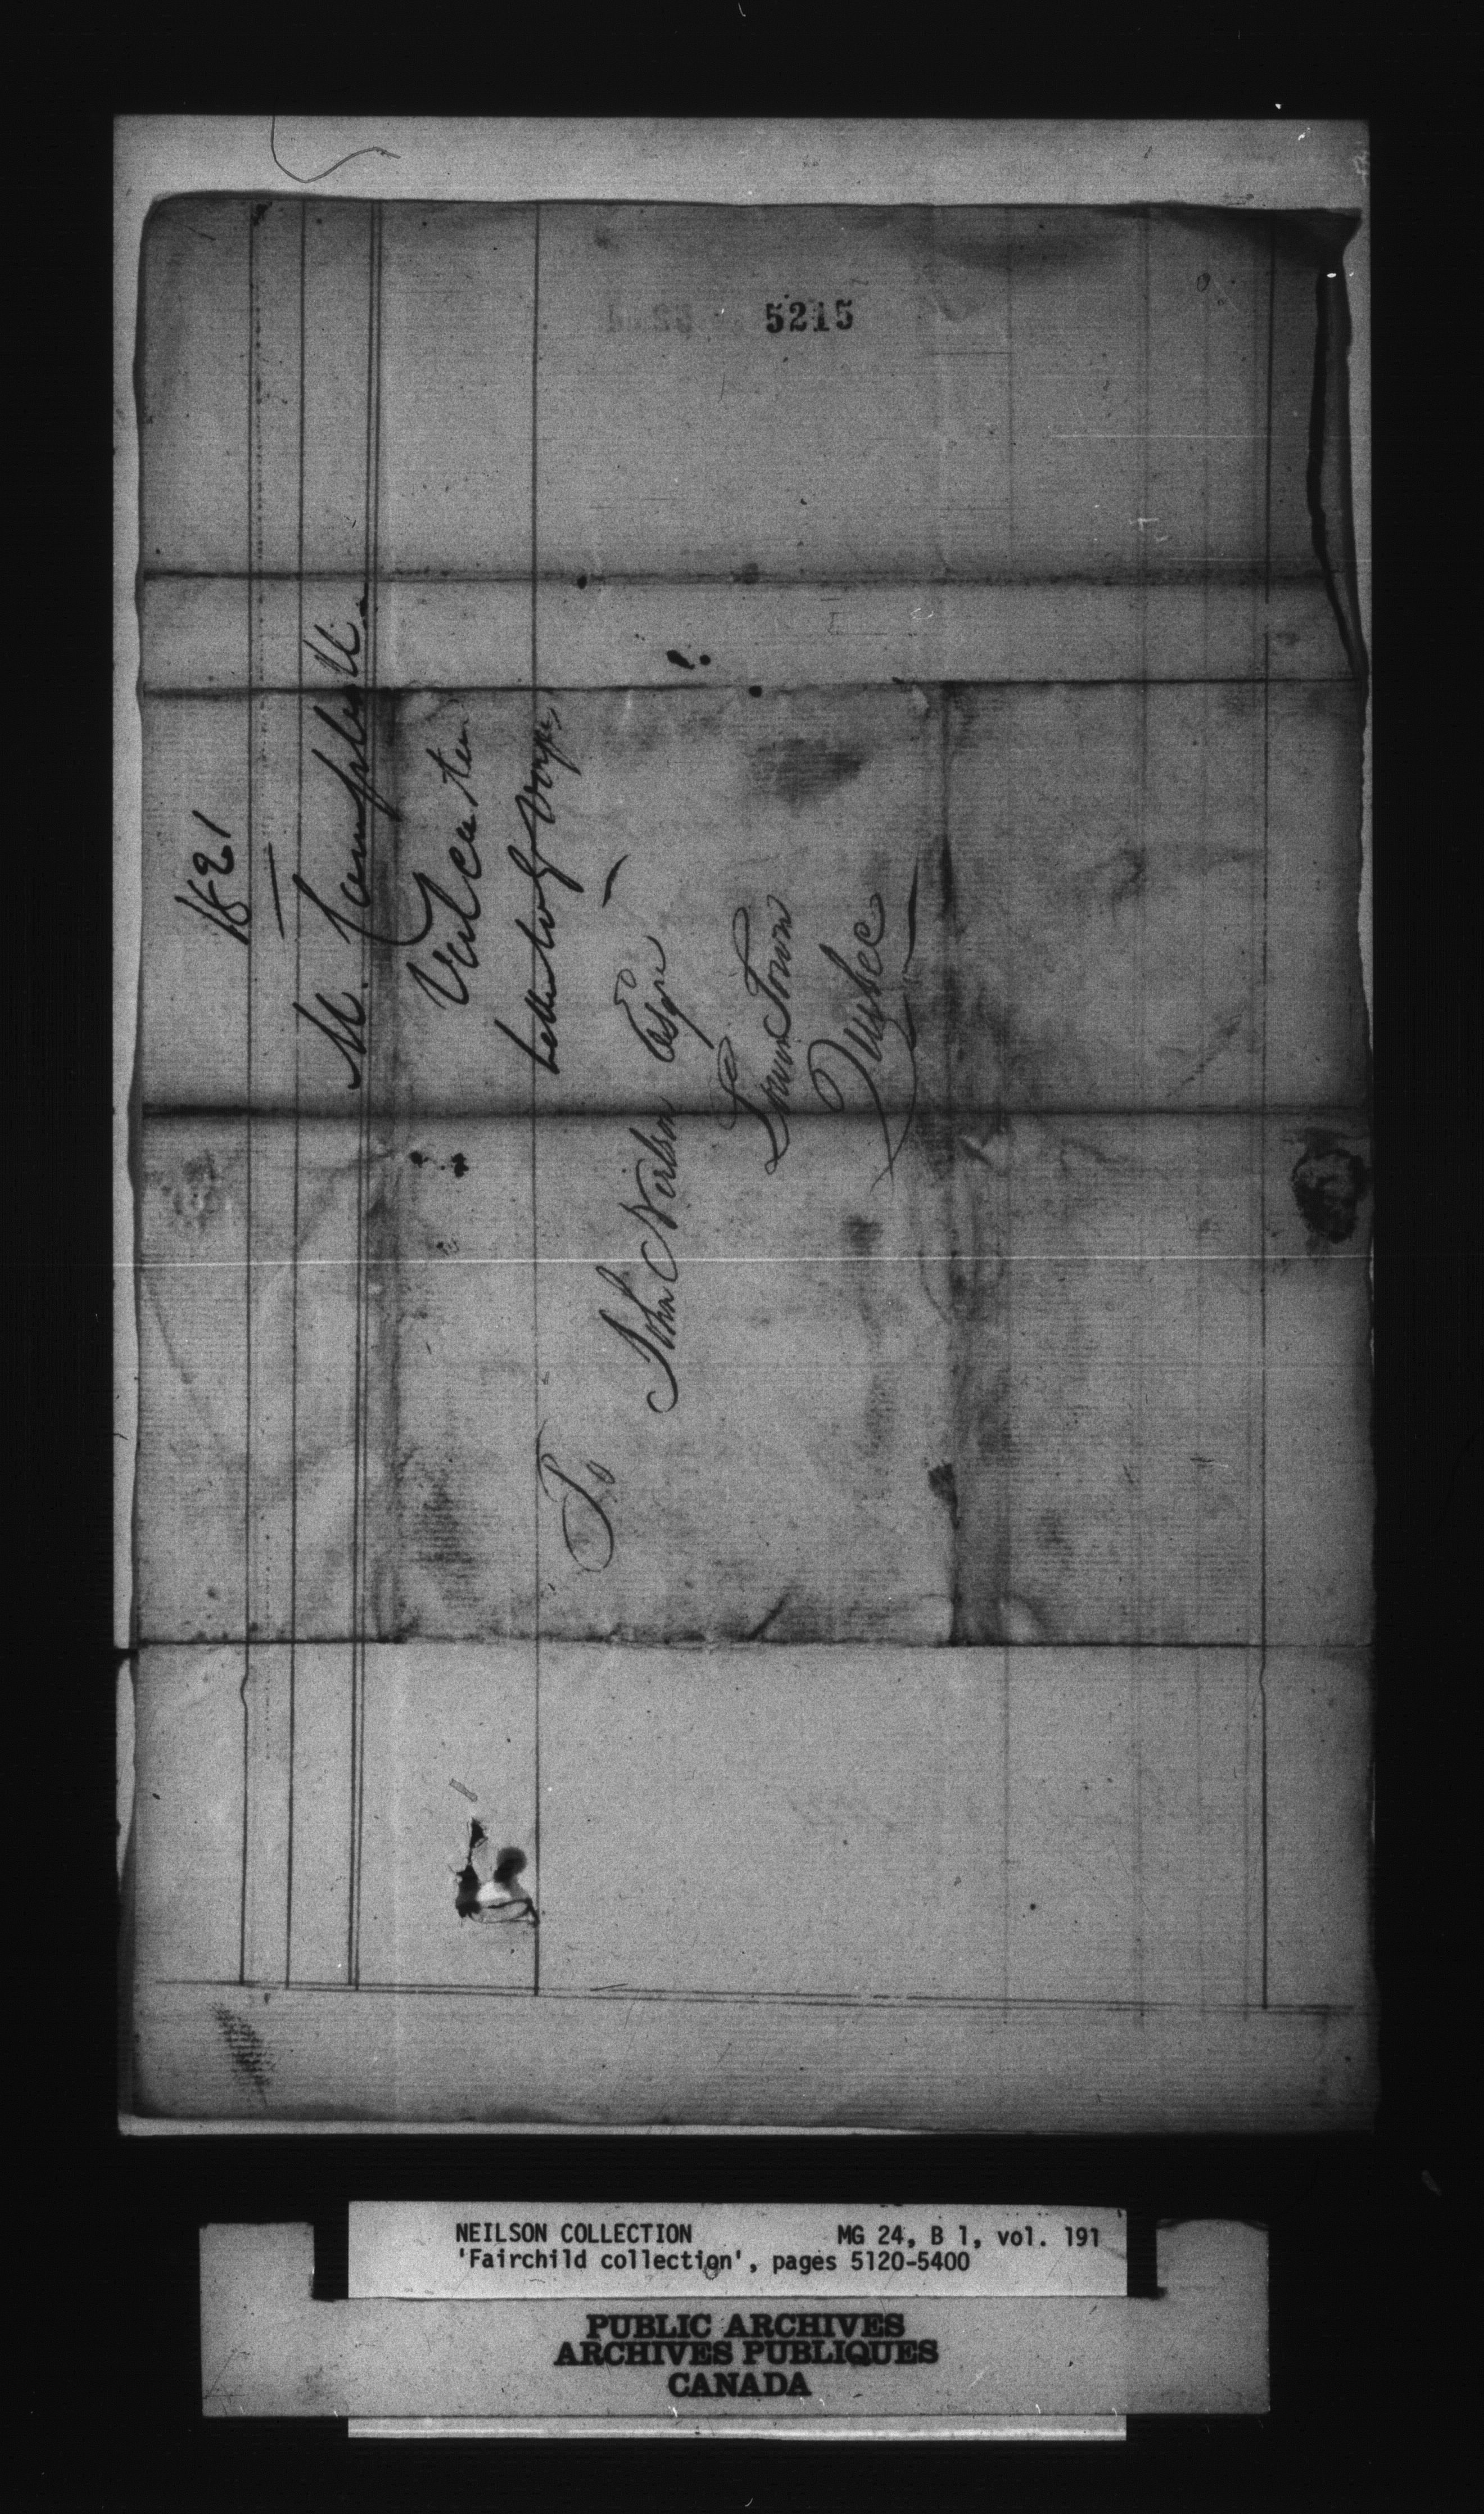 5215
1821
M. Campbell
Valcartier
John Neilson Esqr
To
Lower Town
Quebec
NEILSON COLLECTION MG 24, B 1, vol. 191
'Fairchild collection', pages 5120-5400
PUBLIC ARCHIVES
ARCHIVES PUBLIQUES
CANADA